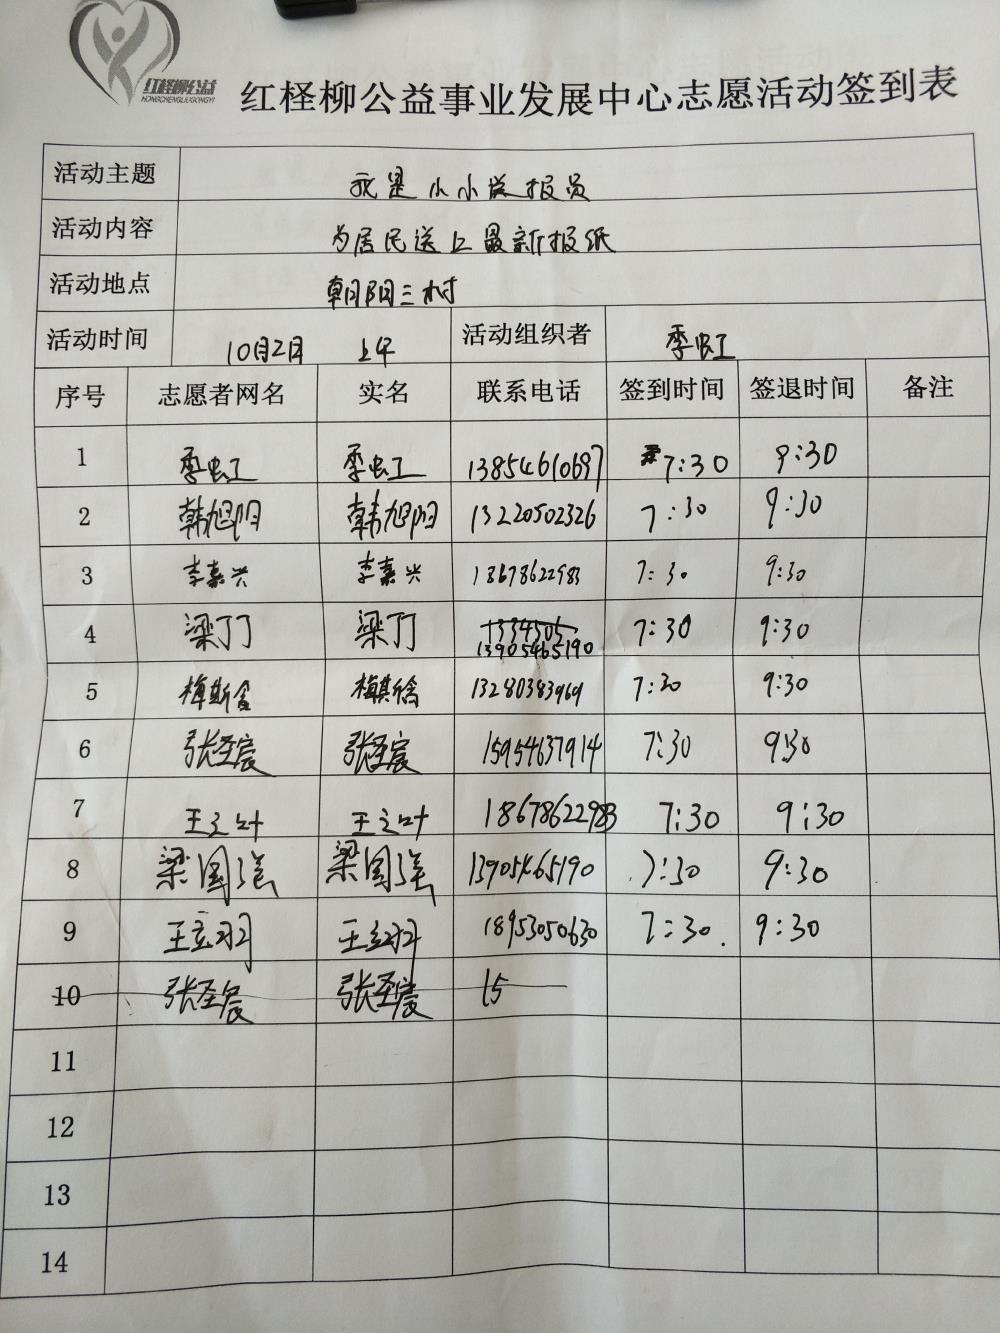 红柽柳公益
HONGCHENGLIUGONGYI
红柽柳公益事业发展中心志愿活动签到表
活动主题 我是小小送报员
活动内容 为居民送上最新报纸
活动地点 朝阳三村
活动时间 10月2日 上午 活动组织者 季虹
序号 志愿者网名 实名 联系电话 签到时间 签退时间 备注
1 季虹 季虹 13854610697 7:30 9:30
2 韩旭阳 韩旭阳 13220502326 7:30 9:30
3 李嘉兴 李嘉兴 18678622983 7:30 9:30
4 梁丁丁 梁丁丁 1334505 7:30 9:30
13905465190
5 梅斯 梅 13280383969 7:30 9:30
6 张圣宸 张圣宸 15954637914 7:30 9:30
7 王立叶 王立叶 18678622983 7:30 9:30
8 梁国强 梁国强 13905465190 7:30 9:30
9 王立羽 王立羽 18953050630 7:30. 9:30
10 张圣宸 张圣宸 15
11
12
13
14